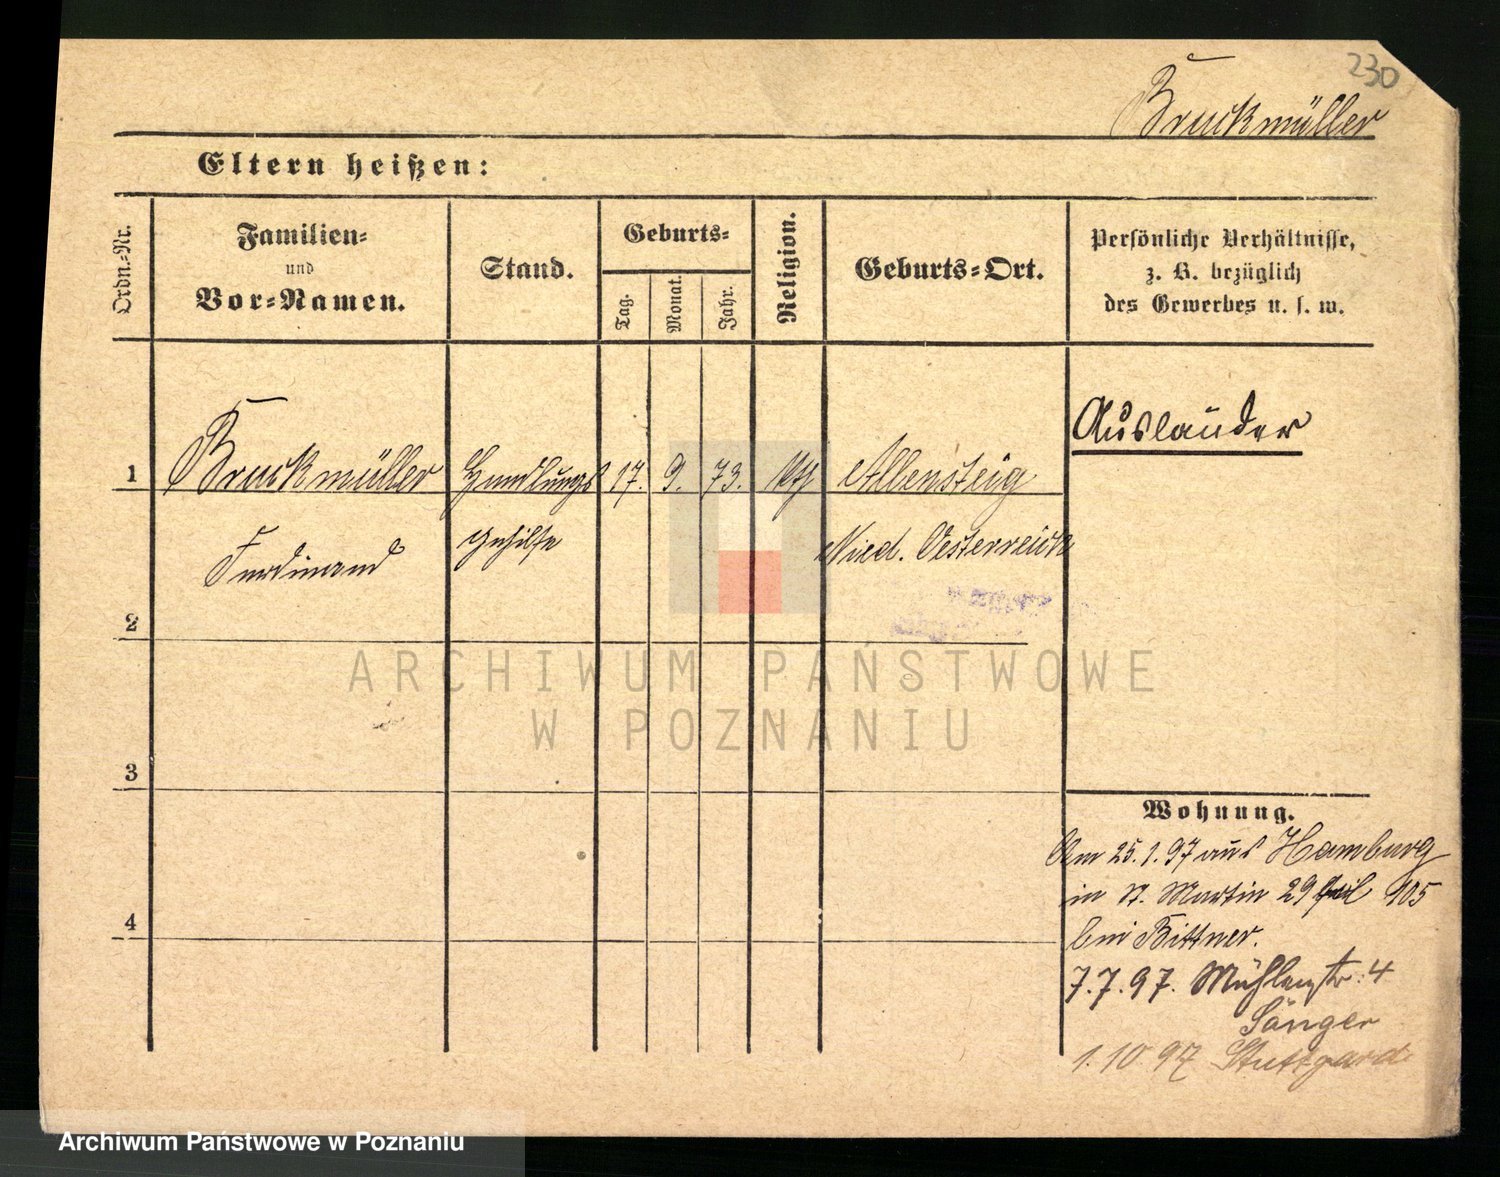 230
Bruckmüller
Eltern heißen:
Ordn.-Nr.
Familien-
und
Vor-Namen.
Stand.
Geburts-
Tag.
Monat.
Jahr.
Religion.
Geburts-Ort.
Persönliche Verhältnisse,
z. B. bezüglich
des Gewerbes u. s. w.
Ausländer
1 Bruckmüller Handlungs 17. 9. 73. kth Allensteig
Ferdinand gehilfe Nied. Oesterreich
2
ARCHIWUM PAŃSTWOWE
W POZNANIU
3
Wohnung.
Am 25.1.97 aus Hamburg
in St. Martin 29 105
bei Bittner.
4
7.7.97. Mühlenstr: 4
Sänger
1.10 97 Stuttgard
Archiwum Państwowe w Poznaniu